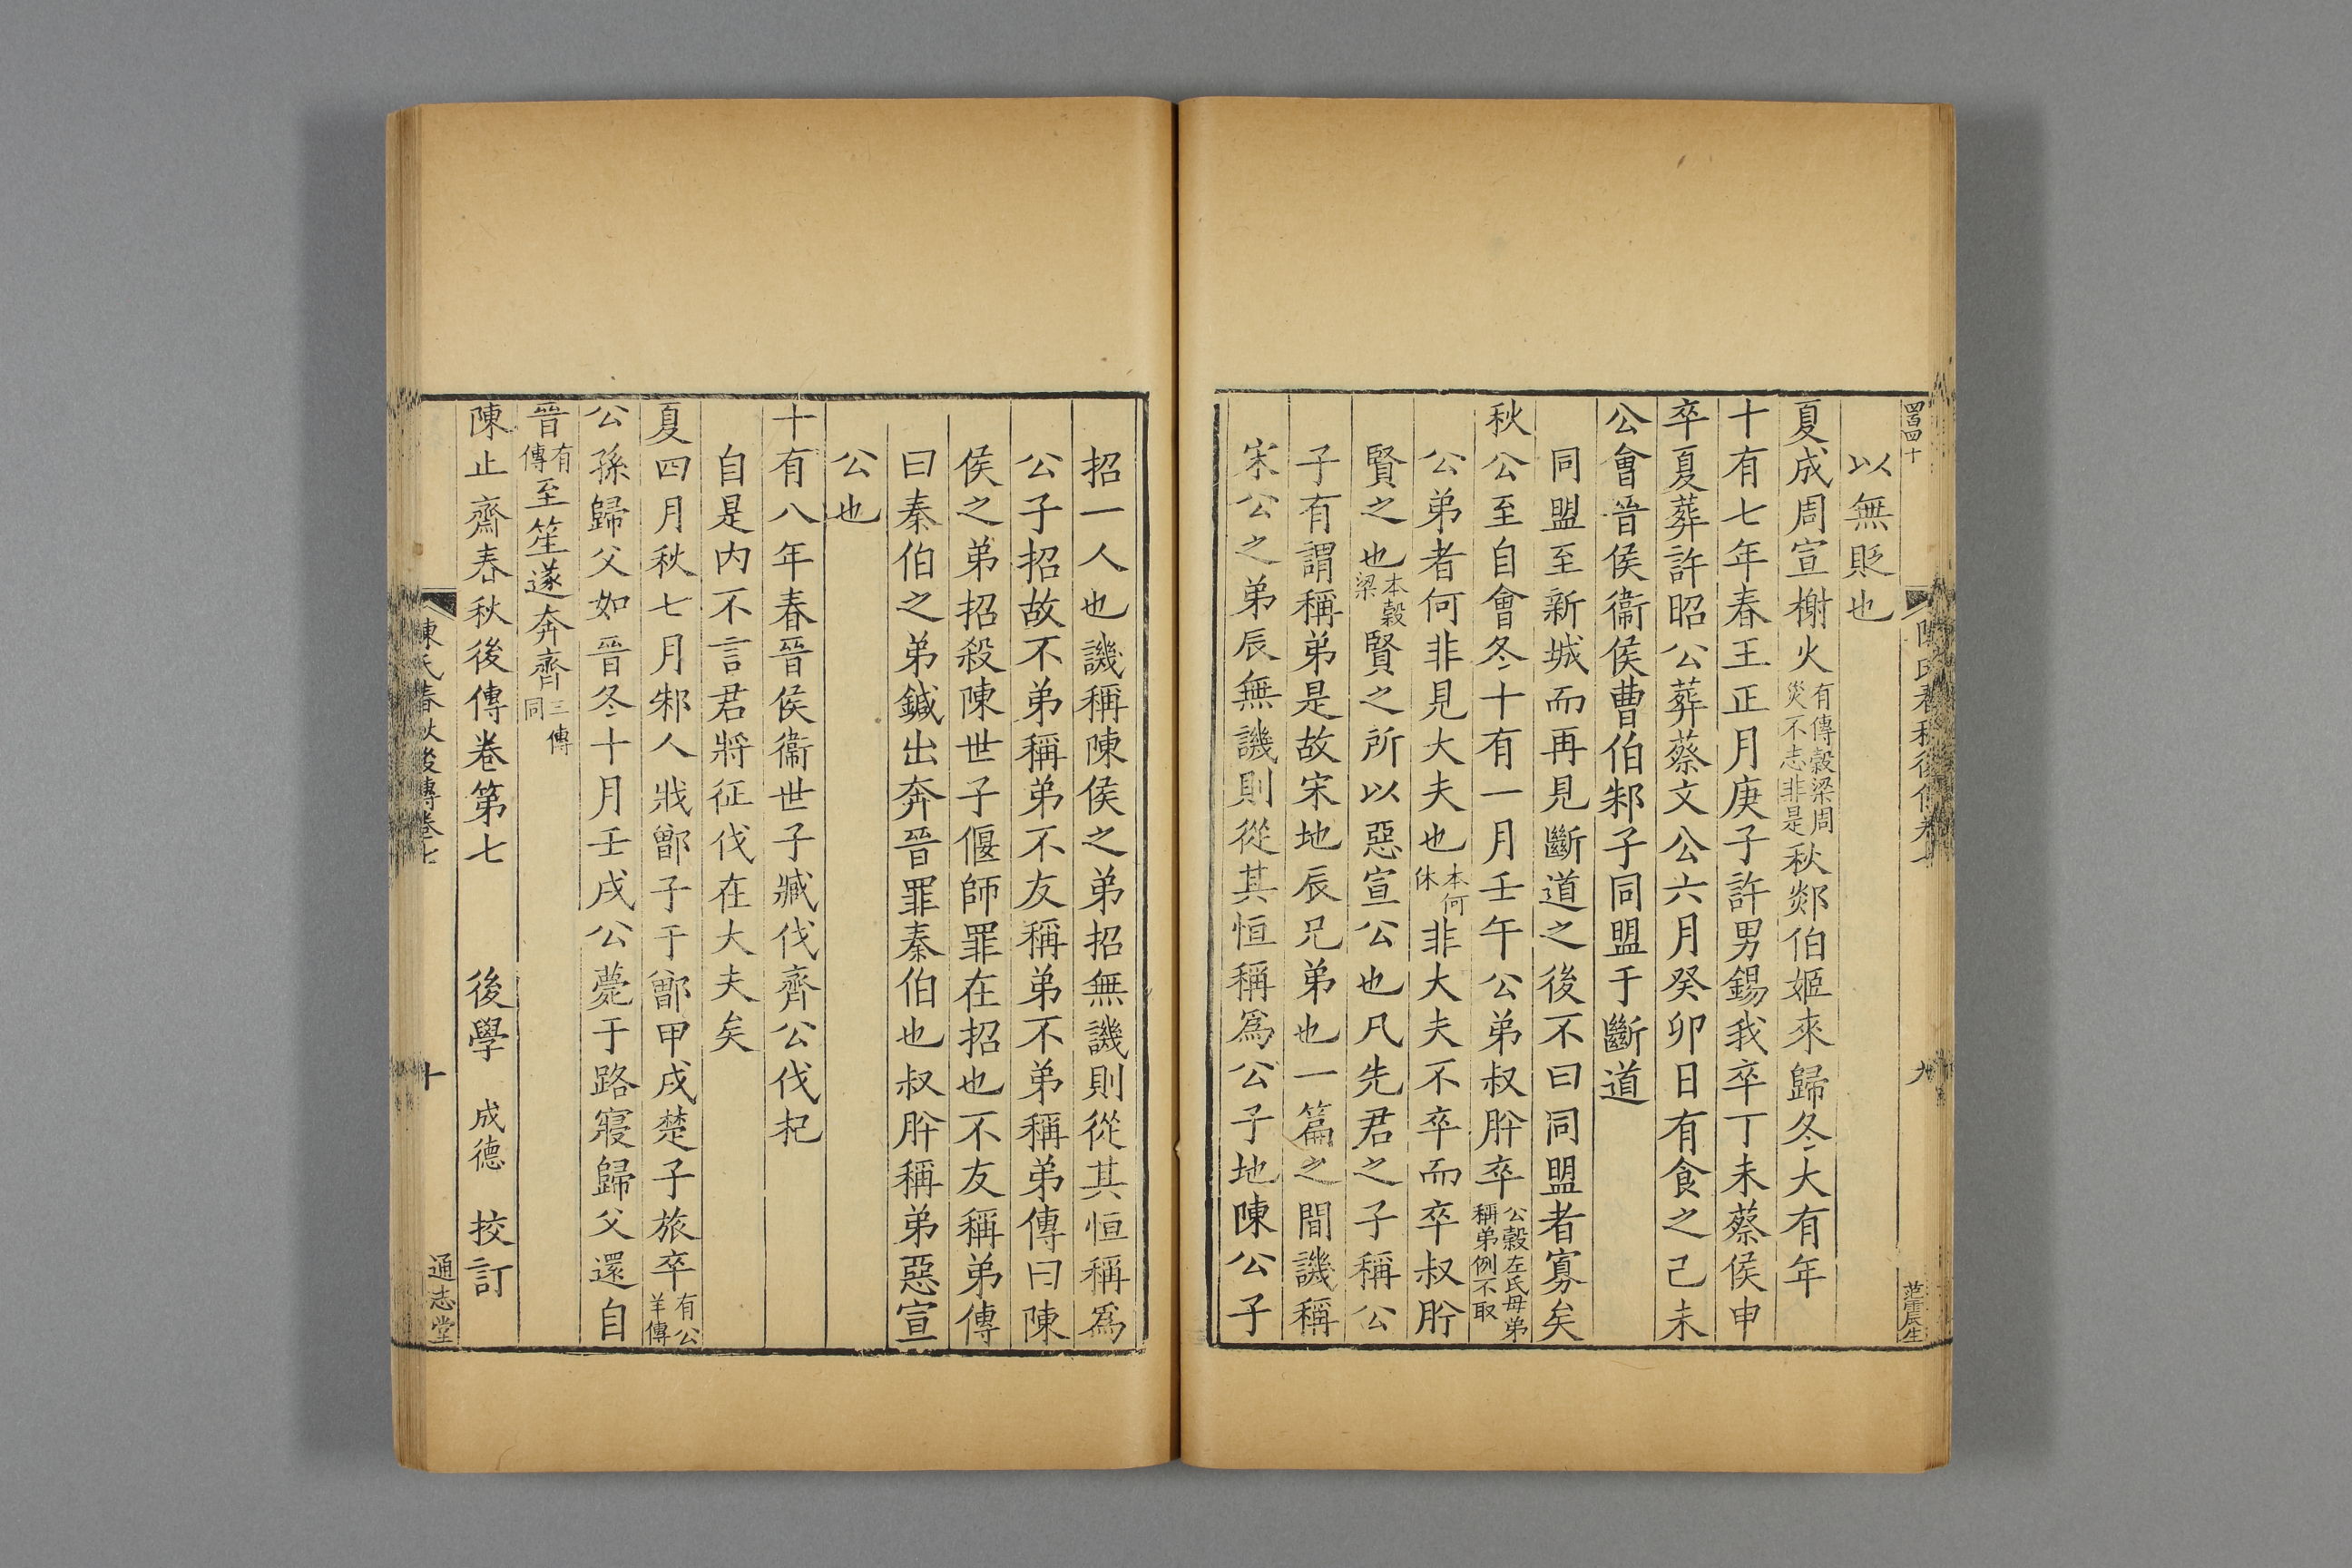 以無貶也
夏成周宣榭火有傳穀梁周災不志非是秋郯伯姬來歸冬大有年
十有七年春王正月庚子許男錫我卒丁未蔡侯申
卒夏葬許昭公葬蔡文公六月癸卯日有食之己未
公會晉侯衞侯曹伯邾子同盟于斷道
同盟至新城而再見斷道之後不曰同盟者寡矣
秋公至自會冬十有一月壬午公弟叔肸卒公穀左氏母弟稱弟例不取
公弟者何非見大夫也本何休非大夫不卒而卒叔肸
賢之也本穀梁賢之所以惡宣公也凡先君之子稱公
子有謂稱弟是故宋地辰兄弟也一篇之間譏稱
宋公之弟辰無譏則從其恒稱爲公子地陳公子
范震生
九
招一人也譏稱陳侯之弟招無譏則從其恒稱爲
公子招故不弟稱弟不友稱弟不弟稱弟傳曰陳
侯之弟招殺陳世子偃師罪在招也不友稱弟傳
曰秦伯之弟鍼出奔晉罪秦伯也叔肸稱弟惡宣
公也
十有八年春晉侯衞世子臧伐齊公伐杞
自是内不言君將征伐在大夫矣
夏四月秋七月邾人戕鄫子于鄫甲戌楚子旅卒有公羊傳
公孫歸父如晉冬十月壬戌公薨于路寢歸父還自
晉有傳至笙遂奔齊三傳同
陳止齋春秋後傳卷第七 後學 成德 挍訂
陳氏春秋後傳卷七
十
通志堂